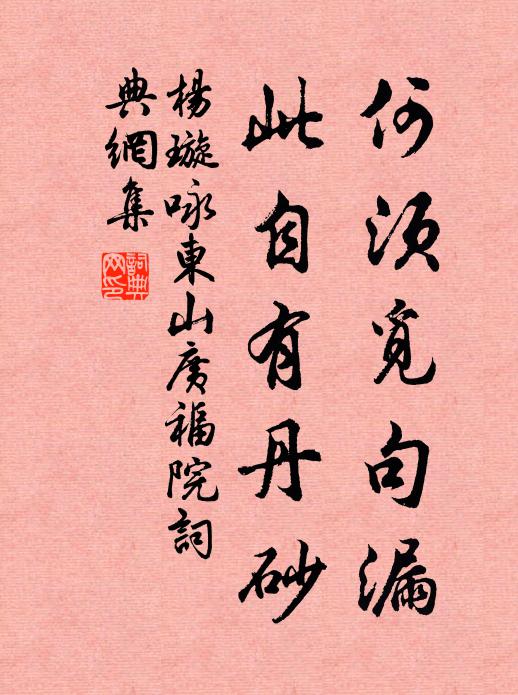 何須覓句漏
此自有丹砂
楊璇咏東山廣福院詞
典網集
詞典網印